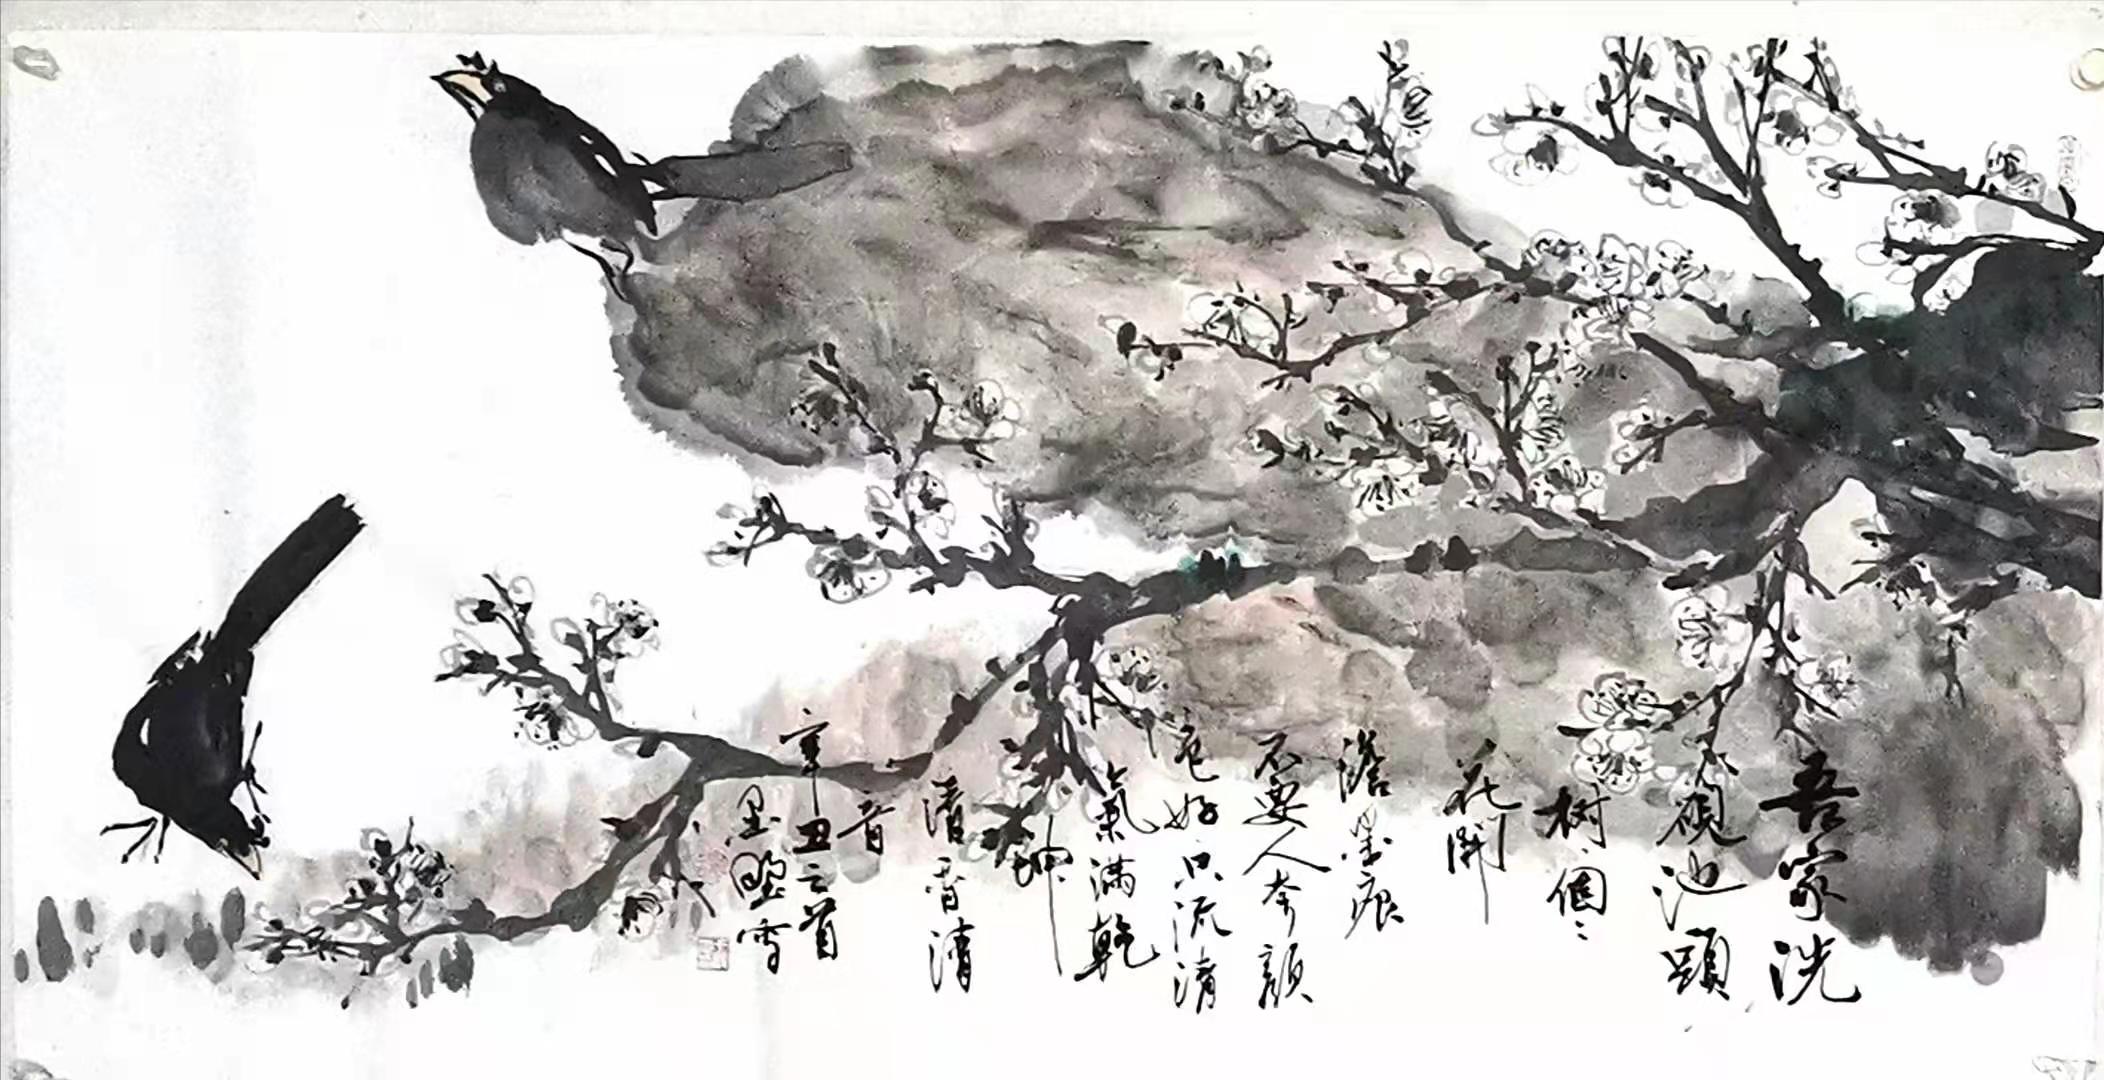 吾家洗
硯池頭
树個〻
花開
澹墨痕
不要人夸顔
色好只流清
氣滿乾
坤
清 清
辛丑之首
墨 雪